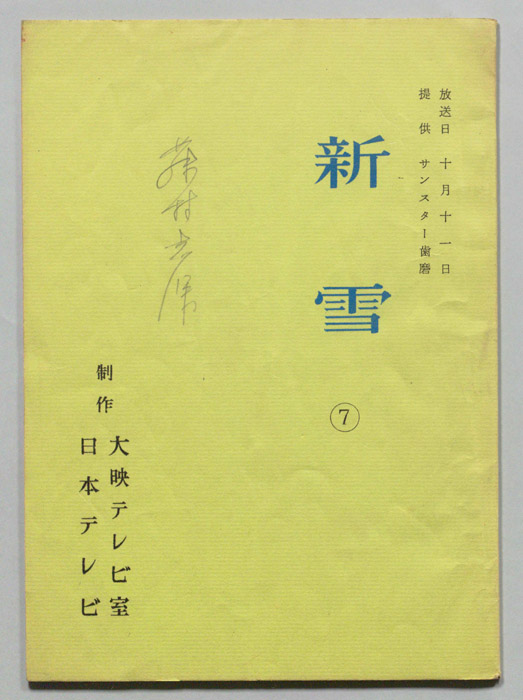 放送日 十月十一日
提供 サンスター歯磨
新雪
⑦
制作 大映テレビ室
日本テレビ